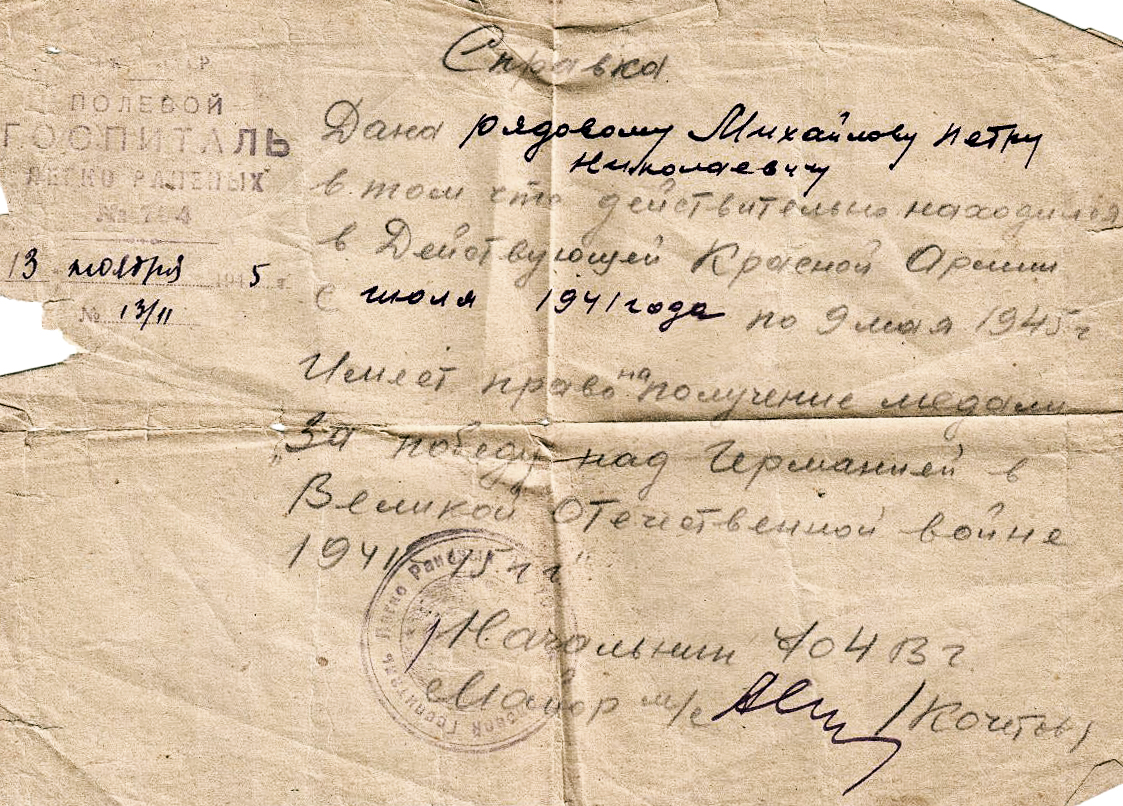 ПОЛЕВОЙ
ГОСПИТАЛЬ
ЛЕГКО РАНЕНЫХ
№ 704
13 ноября 1945 г.
№ 13/11
Справка
Дана рядовому Михайлову Петру
Николаевичу
в том что действительно находился
в Действующей Красной Армии
с июля 1941 года по 9 мая 1945 г
Имеет право на получение медали
"За победу над Германией в
Великой Отечественной войне
1941-45 г г"
Начальник 704 ВГ
Майор м/с /Кочетов/
Легко Раненых
Госпиталь